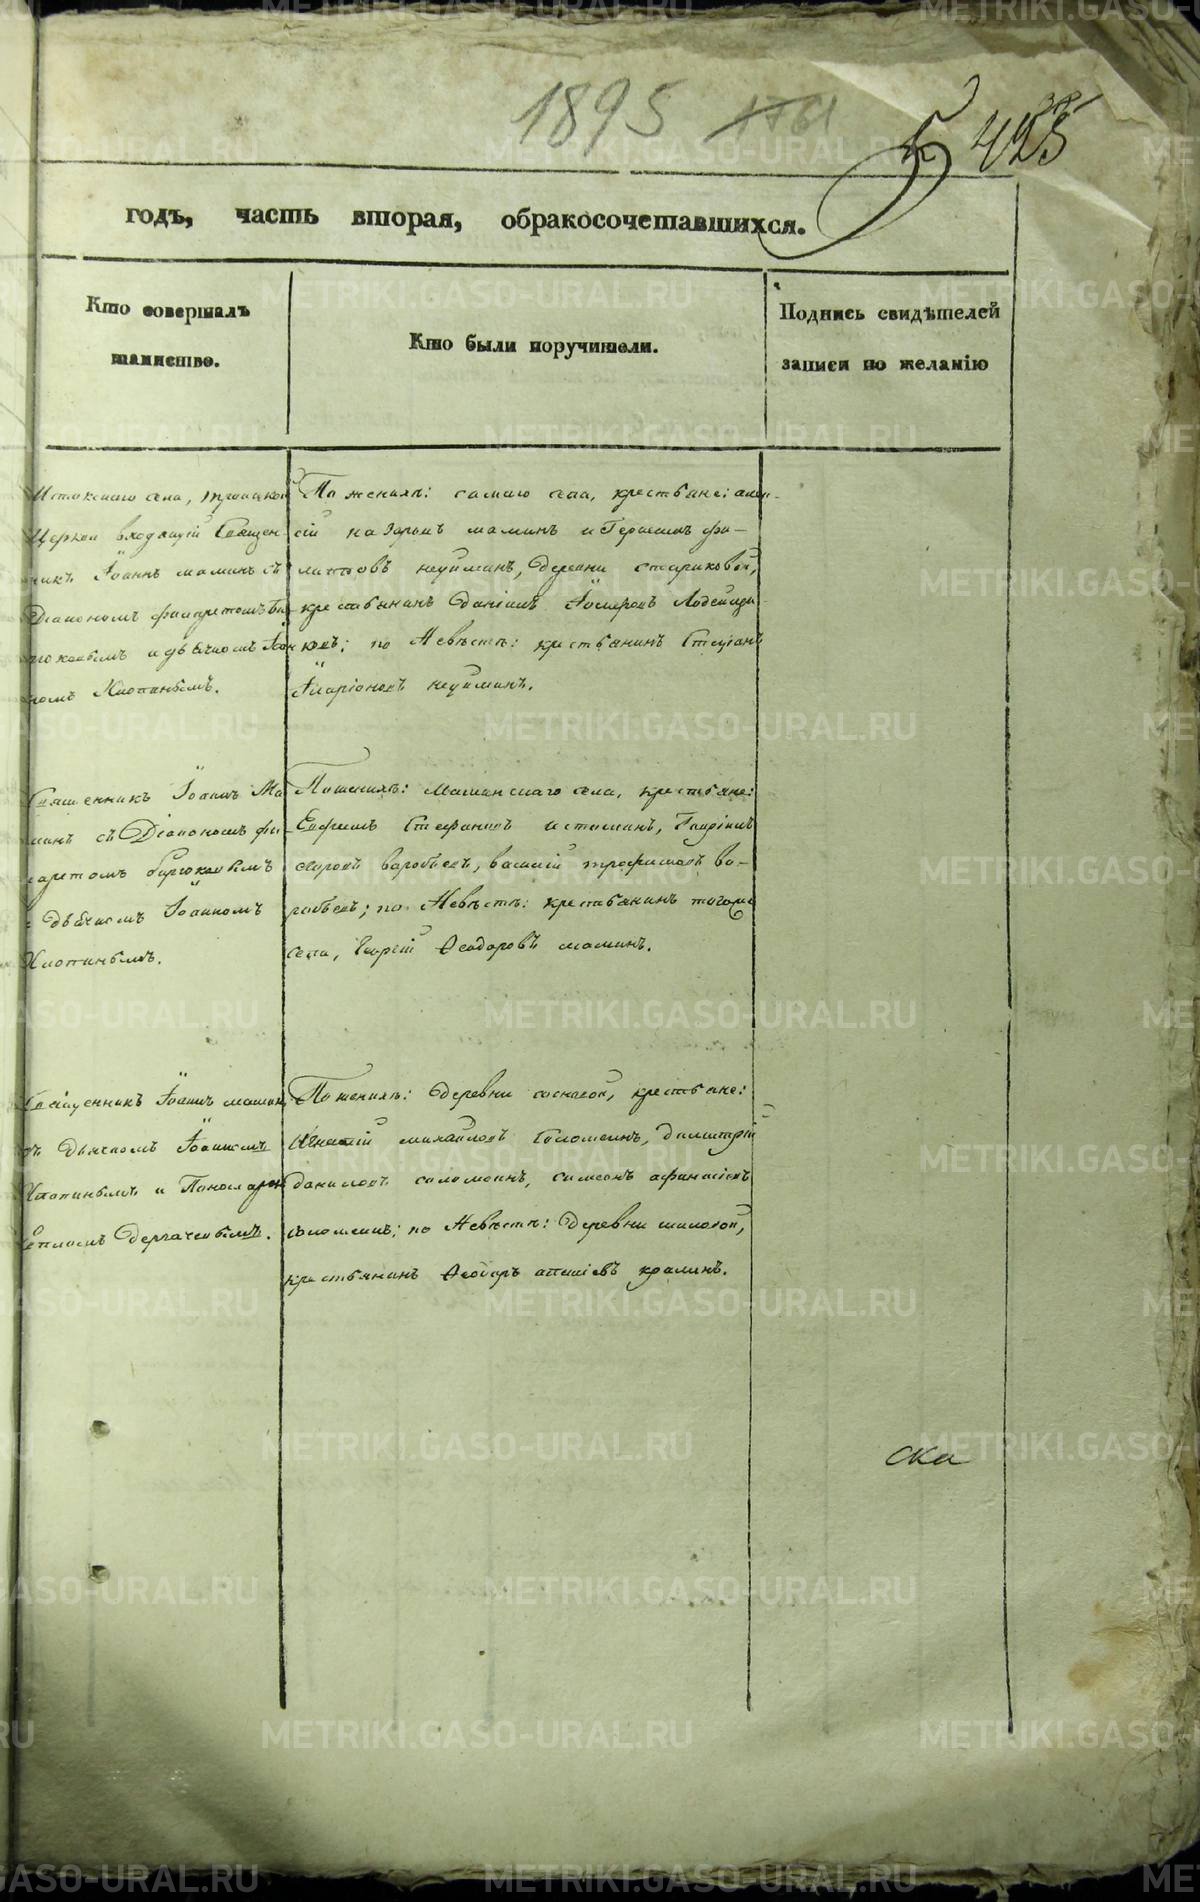 1895 1761
5 425
годъ, часть вторая, обракосочетавшихся.
Кто совершалъ
таинство.
Кто были поручители.
Подпись свидѣтелей
записи по желанію
Истокскаго села, троицкой
Церкви входящій Священ
никъ Іоаннъ маминъ съ
Діакономъ филаретомъ би
рюковымъ и дьячкомъ Іоан
номъ Хлопинымъ.
По женихѣ: самаго села, крестьяне: алек
сій назаровъ маминъ и Герасимъ фи-
липповъ неуйминъ, деревни стариковой,
крестьянинъ даніилъ
ковъ; по Невѣстѣ: крестьянинъ Стефанъ
Иларіоновъ неуйминъ.
Священникъ Іоаннъ Ма
минъ съ Діакономъ фи
ларетомъ бирюковымъ
и Дьячкомъ Іоанномъ
Хлопинымъ.
По женихѣ: Маминскаго села, крестьяне:
Ефремъ Стефановъ истоминъ, Гавріилъ
воробьевъ, василій трофимовъ во-
робьевъ; по Невѣстѣ: крестьянинъ тогоже
села, Георгій Ѳеодоровъ маминъ.
Священникъ Іоаннъ маминъ
съ Дьячкомъ Іоанномъ
Хлопинымъ и Пономаремъ
Дергачевымъ.
По женихѣ: Деревни сосновой, крестьяне:
Игнатій михайловъ Соломеинъ, димитрій
даниловъ соломеинъ, симеонъ афанасіевъ
соломеинъ; по Невѣстѣ: Деревни шиловой,
крестьянинъ Ѳеодоръ кралинъ.
ска
METRIKI.GASO-URAL.RU